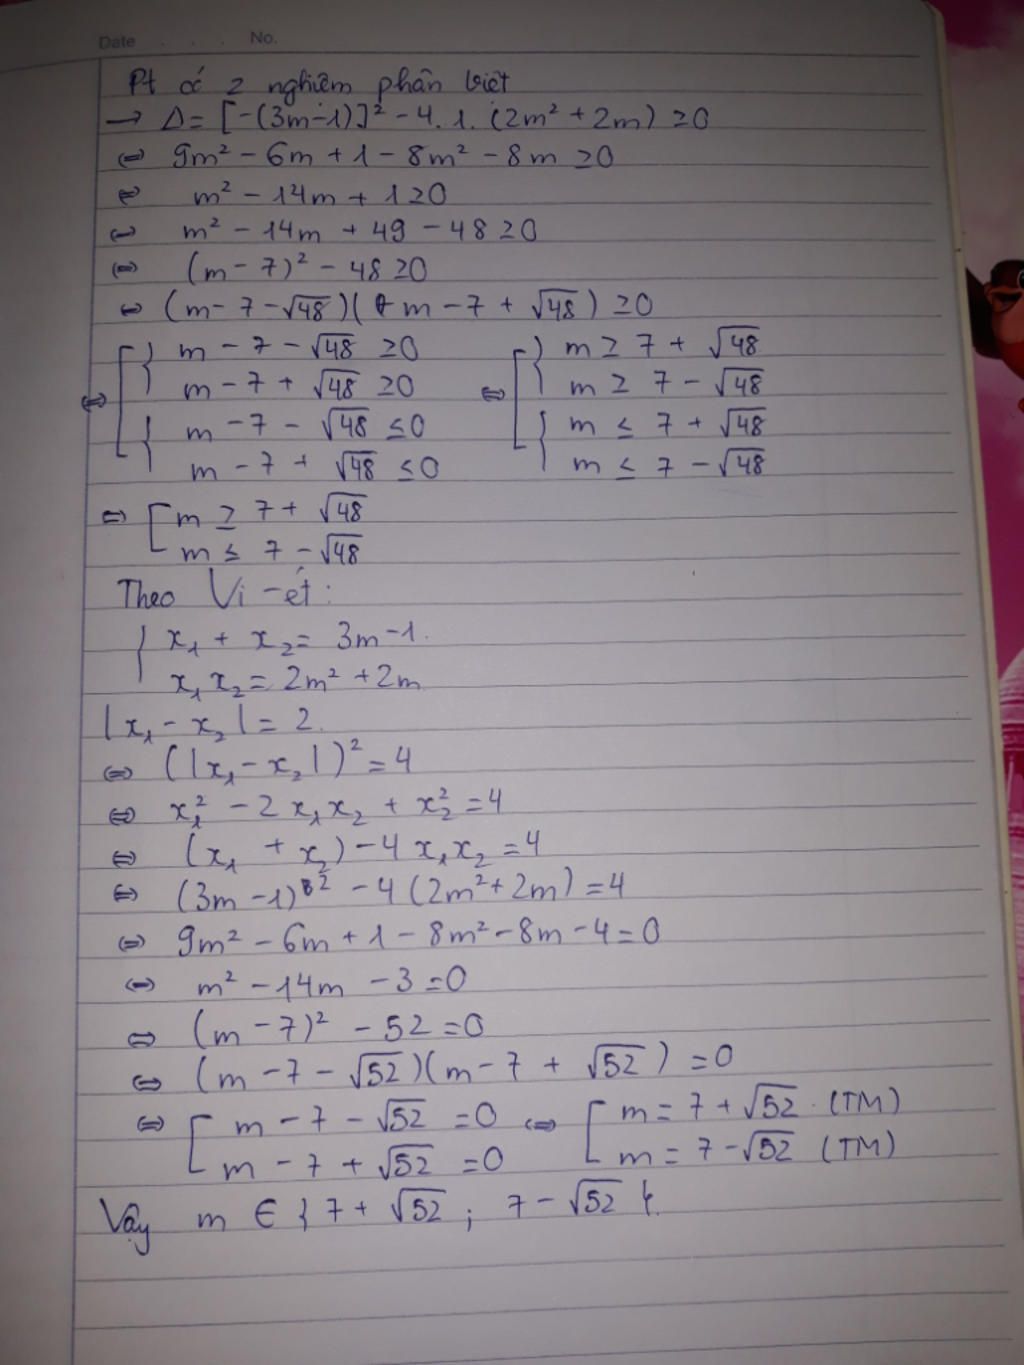 Date . . . No.
Pt có 2 nghiệm phân biệt
→ Δ = [-(3m-1)]² - 4.1.(2m² + 2m) ≥0
⇔ 9m² - 6m + 1 - 8m² - 8m ≥0
⇔ m² - 14m + 1 ≥0
⇔ m² - 14m + 49 - 48 ≥0
⇔ (m - 7)² - 48 ≥0
⇔ (m - 7 - √48)(m - 7 + √48) ≥0
⇔ [ { m - 7 - √48 ≥0 ⇔ [ { m ≥ 7 + √48
m - 7 + √48 ≥0 m ≥ 7 - √48
{ m - 7 - √48 ≤0 { m ≤ 7 + √48
m - 7 + √48 ≤0 m ≤ 7 - √48
⇔ [ m ≥ 7 + √48
m ≤ 7 - √48
Theo Vi-ét:
{ x₁ + x₂ = 3m-1.
x₁x₂ = 2m² + 2m
|x₁ - x₂| = 2.
⇔ (|x₁ - x₂|)² = 4
⇔ x₁² - 2x₁x₂ + x₂² = 4
⇔ (x₁ + x₂) - 4x₁x₂ = 4
⇔ (3m - 1)² - 4(2m² + 2m) = 4
⇔ 9m² - 6m + 1 - 8m² - 8m - 4 = 0
⇔ m² - 14m - 3 = 0
⇔ (m - 7)² - 52 = 0
⇔ (m - 7 - √52)(m - 7 + √52) = 0
⇔ [ m - 7 - √52 = 0 ⇔ [ m = 7 + √52 (TM)
m - 7 + √52 = 0 m = 7 - √52 (TM)
Vậy m ∈ { 7 + √52 ; 7 - √52 }.